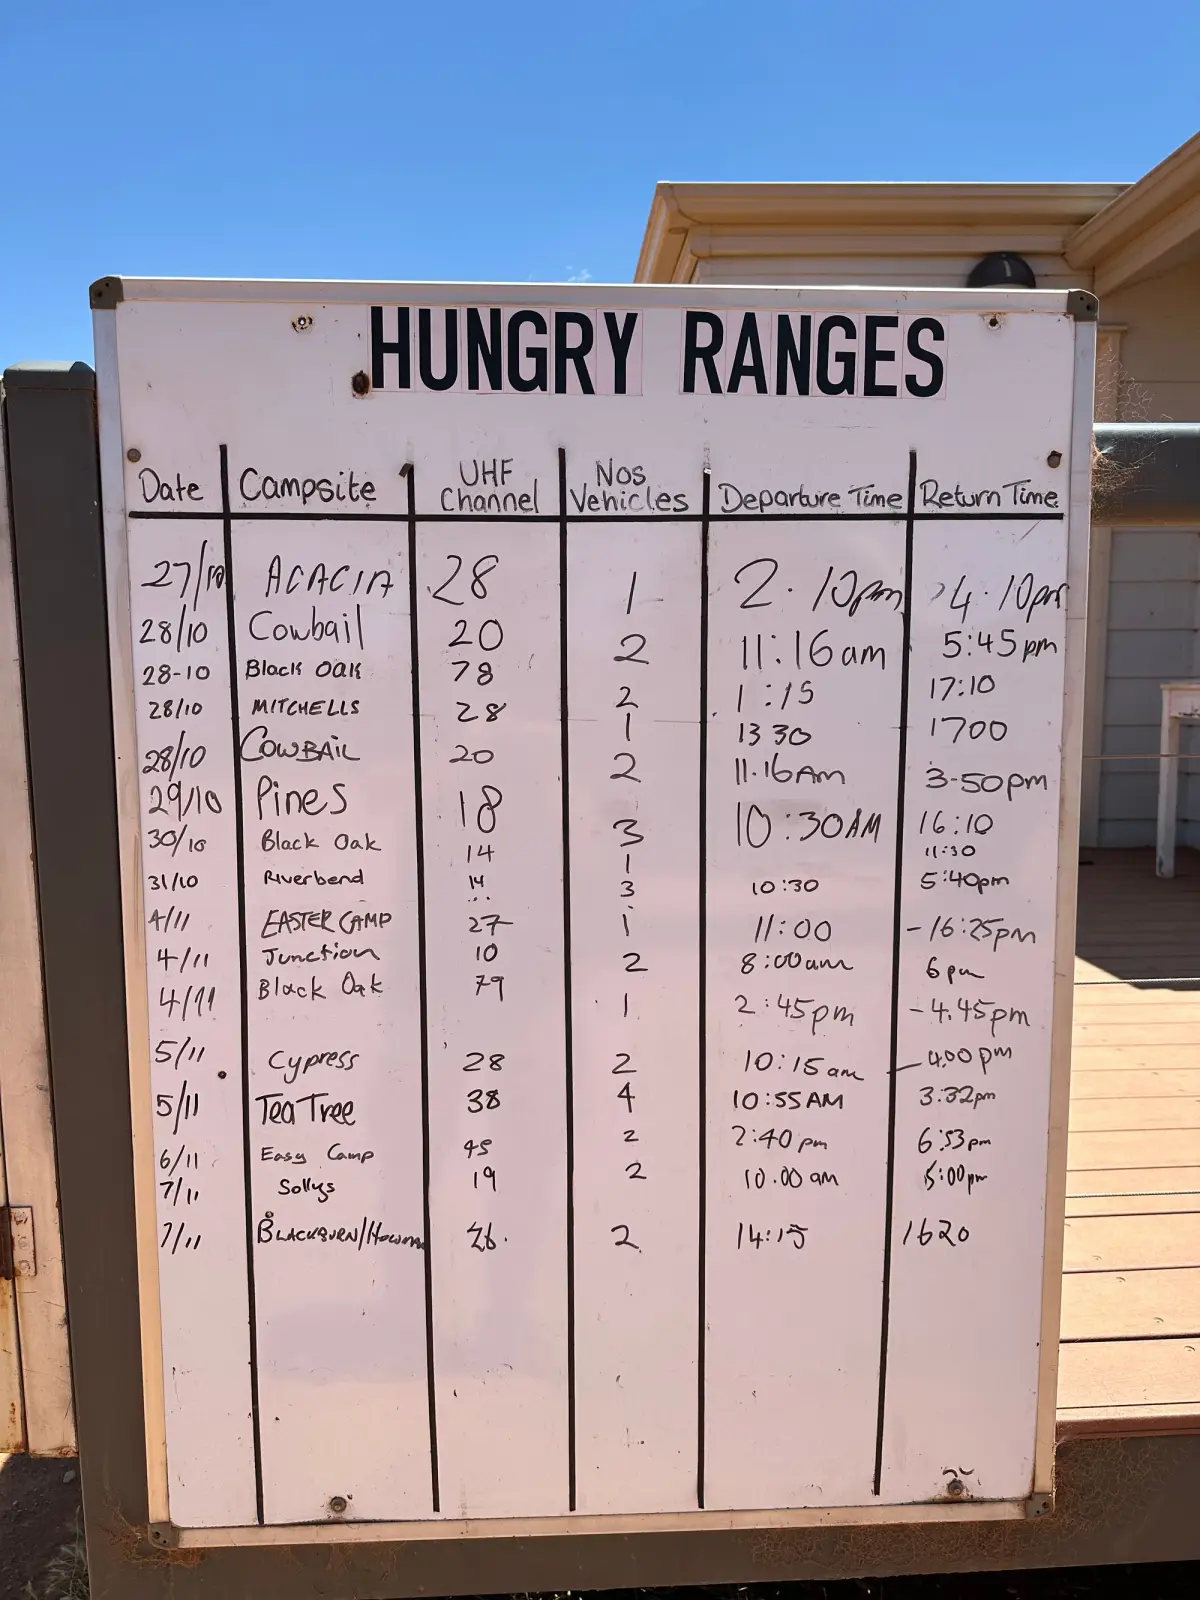 HUNGRY RANGES
Date Campsite UHF Channel Nos Vehicles Departure Time Return Time
27/10 ACACIA 28 1 2.10pm 4.10pm
28/10 Cowbail 20 2 11:16am 5:45pm
28-10 Black Oak 78 2 1:15 17:10
28/10 MITCHELLS 28 1 1330 1700
28/10 COWBAIL 20 2 11.16AM 3-50pm
29/10 Pines 18 3 10:30AM 16:10
30/10 Black Oak 14 1 11:30
31/10 Riverbend 14 3 10:30 5:40pm
4/11 EASTER CAMP 27 1 11:00 -16:25pm
4/11 Junction 10 2 8:00am 6pm
4/11 Black Oak 79 1 2:45pm -4.45pm
5/11 Cypress 28 2 10:15am 4.00pm
5/11 Tea Tree 38 4 10:55AM 3.32pm
6/11 Easy Camp 45 2 2:40pm 6:53pm
7/11 Sollys 19 2 10.00am 5:00pm
7/11 BLACKBURN/ 26. 2 14:15 1620